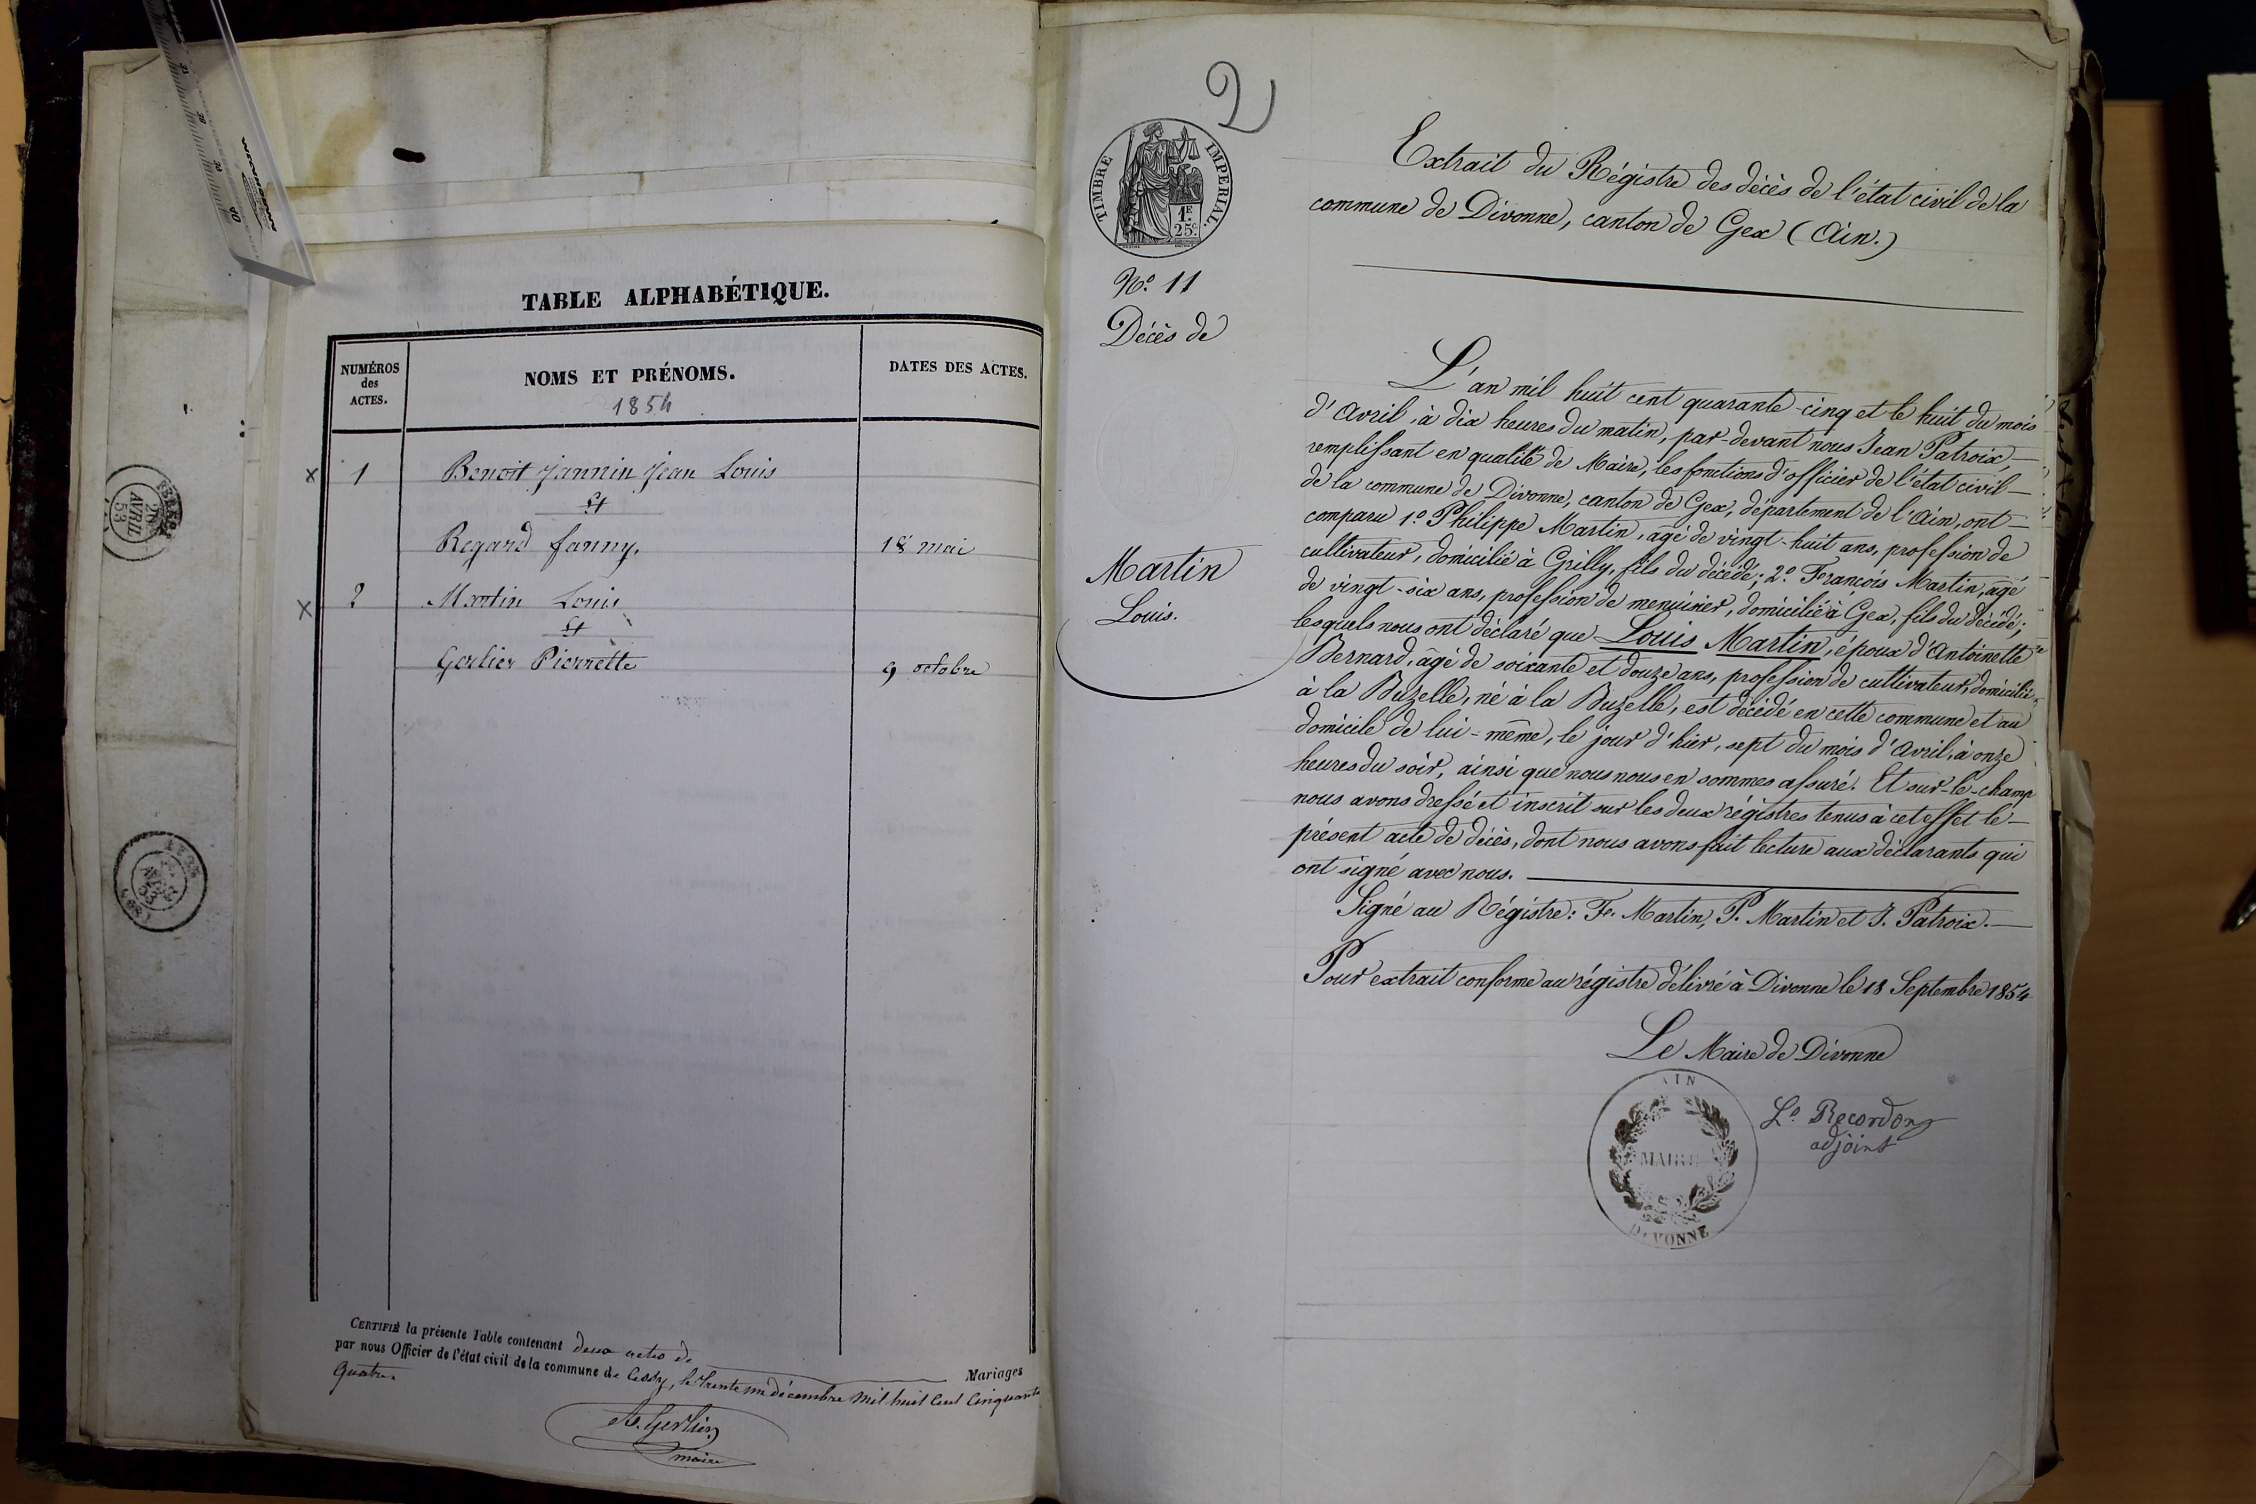 TABLE ALPHABÉTIQUE.
NUMÉROS
des
ACTES.
NOMS ET PRÉNOMS.
1854
DATES DES ACTES.
x 1 Benoit Jannin Jean Louis
et
Regard fanny. 18 mai
x 2 Martin Louis
et
Gerlier Pierrette 9 octobre
CERTIFIÉ la présente Table contenant deux actes de Mariages
par nous Officier de l'état civil de la commune de Cessy, le trente un décembre mil huit Cent Cinquante
quatre.
A. Gerlier
maire
AVRIL
53
2
TIMBRE IMPERIAL.
1F.
25c.
Extrait du Régistre des décès de l'état civil de la
commune de Divonne, canton de Gex (Ain.)
No. 11
Décès de
Martin
Louis.
L'an mil huit cent quarante-cinq et le huit du mois
d'Avril, à dix heures du matin, par-devant nous Jean Patroix,—
remplissant en qualité de Maire, les fonctions d'officier de l'état civil—
de la commune de Divonne, canton de Gex, département de l'Ain, ont—
comparu 1o. Philippe Martin, âgé de vingt-huit ans, profession de
cultivateur, domicilié à Grilly, fils du décédé; 2o. François Martin, âgé
de vingt-six ans, profession de menuisier, domicilié à Gex, fils du décédé;
lesquels nous ont déclaré que Louis Martin, époux d'Antoinette
Bernard, âgé de soixante et douze ans, profession de cultivateur, domicilié
à la Buzelle, né à la Buzelle, est décédé en cette commune et au
domicile de lui-même, le jour d'hier, sept du mois d'Avril, à onze
heures du soir, ainsi que nous nous en sommes assuré. Et sur-le-champ
nous avons dressé et inscrit sur les deux régistres tenus à cet effet le—
présent acte de décès, dont nous avons fait lecture aux déclarants qui
ont signé avec nous.
Signé au Régistre: Fs. Martin, P. Martin et J. Patroix.—
Pour extrait conforme au régistre délivré à Divonne le 18 Septembre 1854
Le Maire de Divonne
Ls. Recordon
adjoint
AIN
MAIRIE
DIVONNE